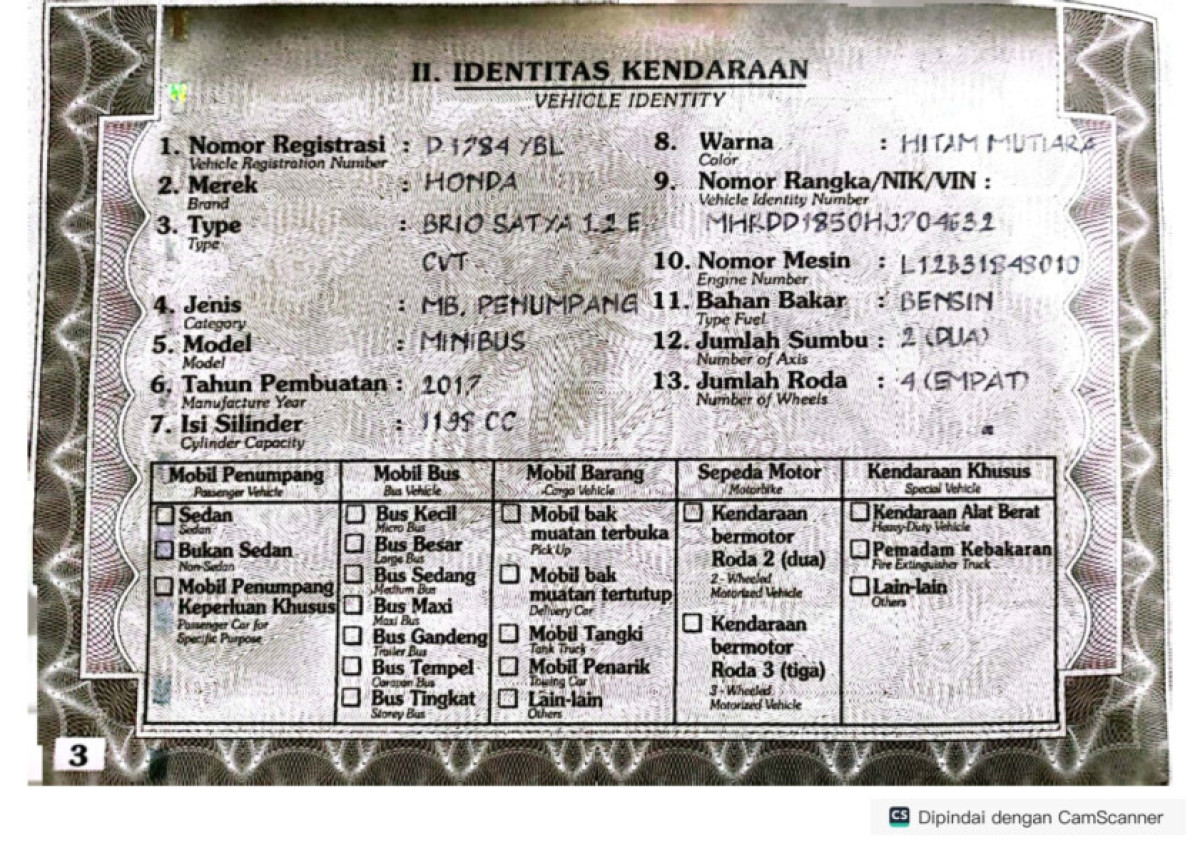 II. IDENTITAS KENDARAAN
VEHICLE IDENTITY
1. Nomor Registrasi : D 1784 YBL
Vehicle Registration Number
2. Merek : HONDA
Brand
3. Type : BRIO SATYA 1.2 E
Type
CVT
4. Jenis : MB. PENUMPANG
Category
5. Model : MINIBUS
Model
6. Tahun Pembuatan : 2017
Manufacture Year
7. Isi Silinder : 1198 CC
Cylinder Capacity
8. Warna : HITAM MUTIARA
Color
9. Nomor Rangka/NIK/VIN :
Vehicle Identity Number
MHRDD1850HJ704632
10. Nomor Mesin : L12B31848010
Engine Number
11. Bahan Bakar : BENSIN
Type Fuel
12. Jumlah Sumbu : 2 (DUA)
Number of Axis
13. Jumlah Roda : 4 (EMPAT)
Number of Wheels
Mobil Penumpang
Passenger Vehicle
Sedan
Sedan
Bukan Sedan
Non-Sedan
Mobil Penumpang
Keperluan Khusus
Passenger Car for
Specific Purpose
Mobil Bus
Bus Vehicle
Bus Kecil
Micro Bus
Bus Besar
Large Bus
Bus Sedang
Medium Bus
Bus Maxi
Maxi Bus
Bus Gandeng
Trailer Bus
Bus Tempel
Caravan Bus
Bus Tingkat
Storey Bus
Mobil Barang
Cargo Vehicle
Mobil bak
muatan terbuka
Pick Up
Mobil bak
muatan tertutup
Delivery Car
Mobil Tangki
Tank Truck
Mobil Penarik
Towing Car
Lain-lain
Others
Sepeda Motor
Motorbike
Kendaraan
bermotor
Roda 2 (dua)
2 - Wheeled
Motorized Vehicle
Kendaraan
bermotor
Roda 3 (tiga)
3 - Wheeled
Motorized Vehicle
Kendaraan Khusus
Special Vehicle
Kendaraan Alat Berat
Heavy-Duty Vehicle
Pemadam Kebakaran
Fire Extinguisher Truck
Lain-lain
Others
3
CS Dipindai dengan CamScanner